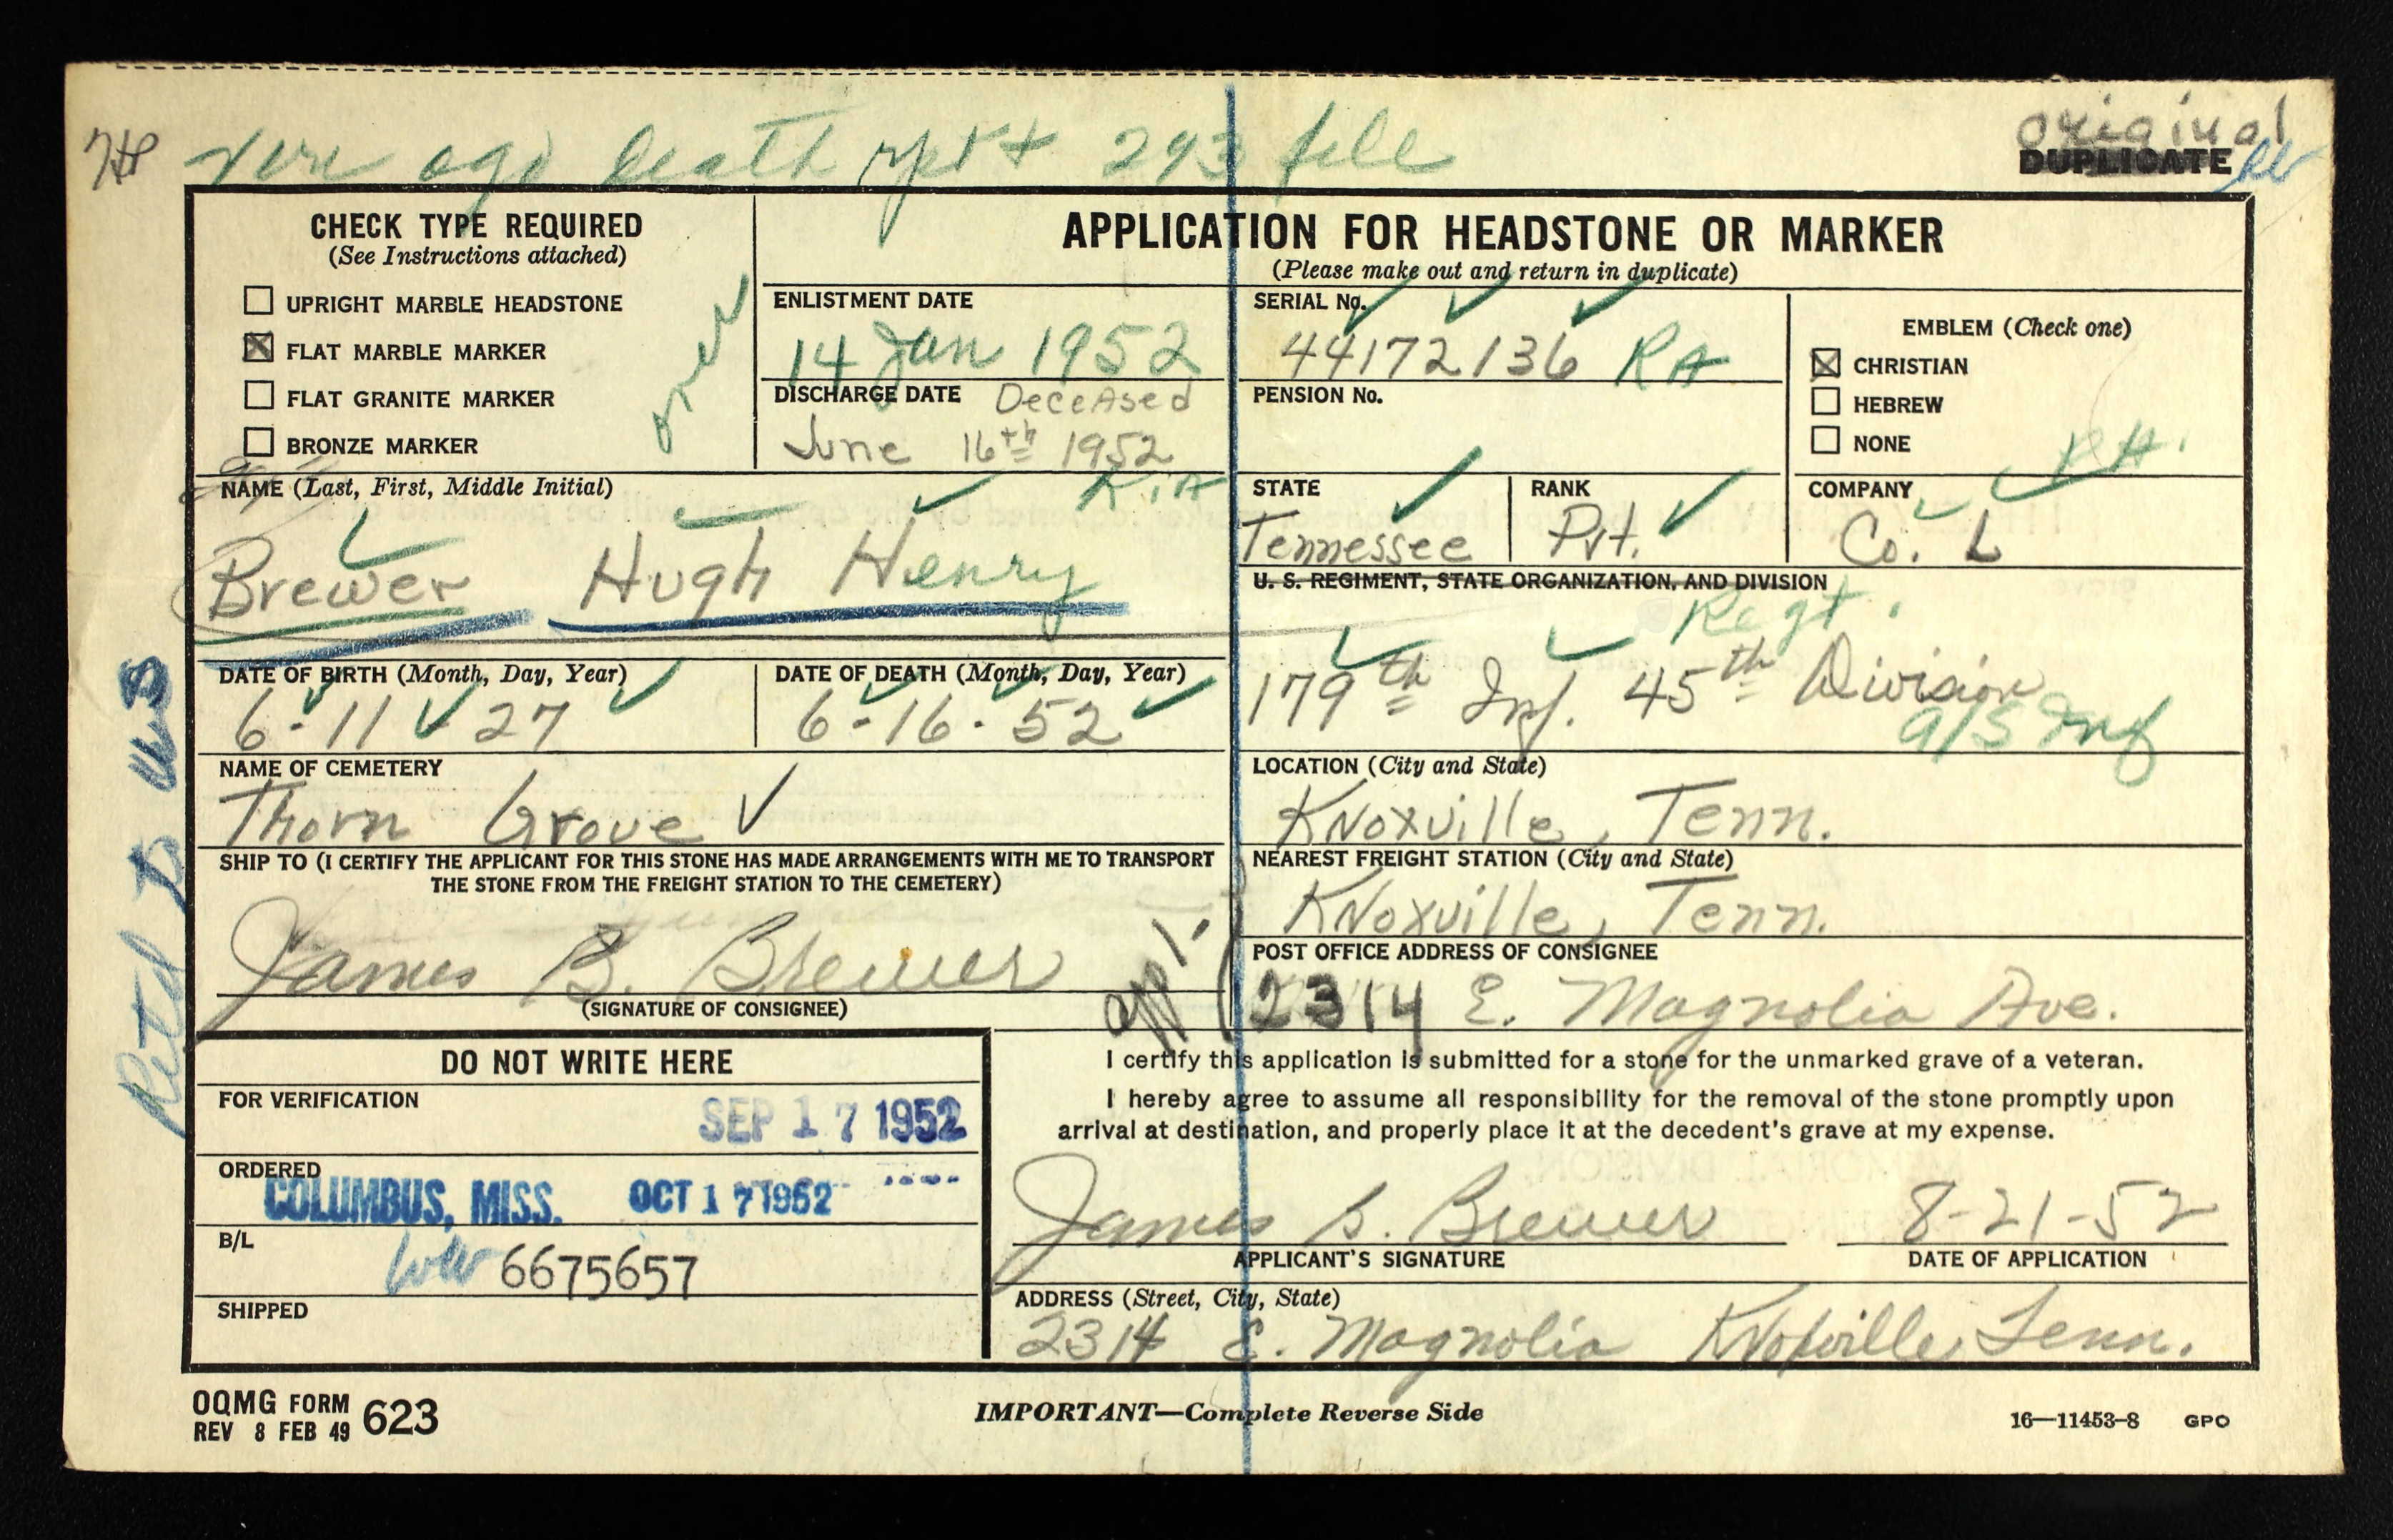 Ver ago death rpt + 293 file
original
DUPLICATE
CHECK TYPE REQUIRED
(See Instructions attached)
UPRIGHT MARBLE HEADSTONE
FLAT MARBLE MARKER
FLAT GRANITE MARKER
BRONZE MARKER
APPLICATION FOR HEADSTONE OR MARKER
(Please make out and return in duplicate)
ENLISTMENT DATE
14 Jan 1952
DISCHARGE DATE Deceased
June 16th 1952
SERIAL No.
44172136 RA
PENSION No.
EMBLEM (Check one)
CHRISTIAN
HEBREW
NONE
NAME (Last, First, Middle Initial)
K.i.A
Brewer Hugh Henry
STATE
Tennessee
RANK
Pvt.
COMPANY
P.H.
Co. L
U. S. REGIMENT, STATE ORGANIZATION, AND DIVISION
Regt.
179th Inf. 45th Division
a/s Inf
DATE OF BIRTH (Month, Day, Year)
6-11-27
DATE OF DEATH (Month, Day, Year)
6-16-52
NAME OF CEMETERY
Thorn Grove
LOCATION (City and State)
Knoxville, Tenn.
SHIP TO (I CERTIFY THE APPLICANT FOR THIS STONE HAS MADE ARRANGEMENTS WITH ME TO TRANSPORT
THE STONE FROM THE FREIGHT STATION TO THE CEMETERY)
James B. Brewer
(SIGNATURE OF CONSIGNEE)
NEAREST FREIGHT STATION (City and State)
Knoxville, Tenn.
POST OFFICE ADDRESS OF CONSIGNEE
appl.
2314 E. Magnolia Ave.
Retd to
DO NOT WRITE HERE
FOR VERIFICATION
SEP 17 1952
ORDERED
COLUMBUS, MISS. OCT 17 1952
B/L
6675657
SHIPPED
I certify this application is submitted for a stone for the unmarked grave of a veteran.
I hereby agree to assume all responsibility for the removal of the stone promptly upon
arrival at destination, and properly place it at the decedent's grave at my expense.
James B. Brewer 8-21-52
APPLICANT'S SIGNATURE DATE OF APPLICATION
ADDRESS (Street, City, State)
2314 E. Magnolia Knoxville, Tenn.
OQMG FORM 623
REV 8 FEB 49
IMPORTANT—Complete Reverse Side
16—11453-8 GPO